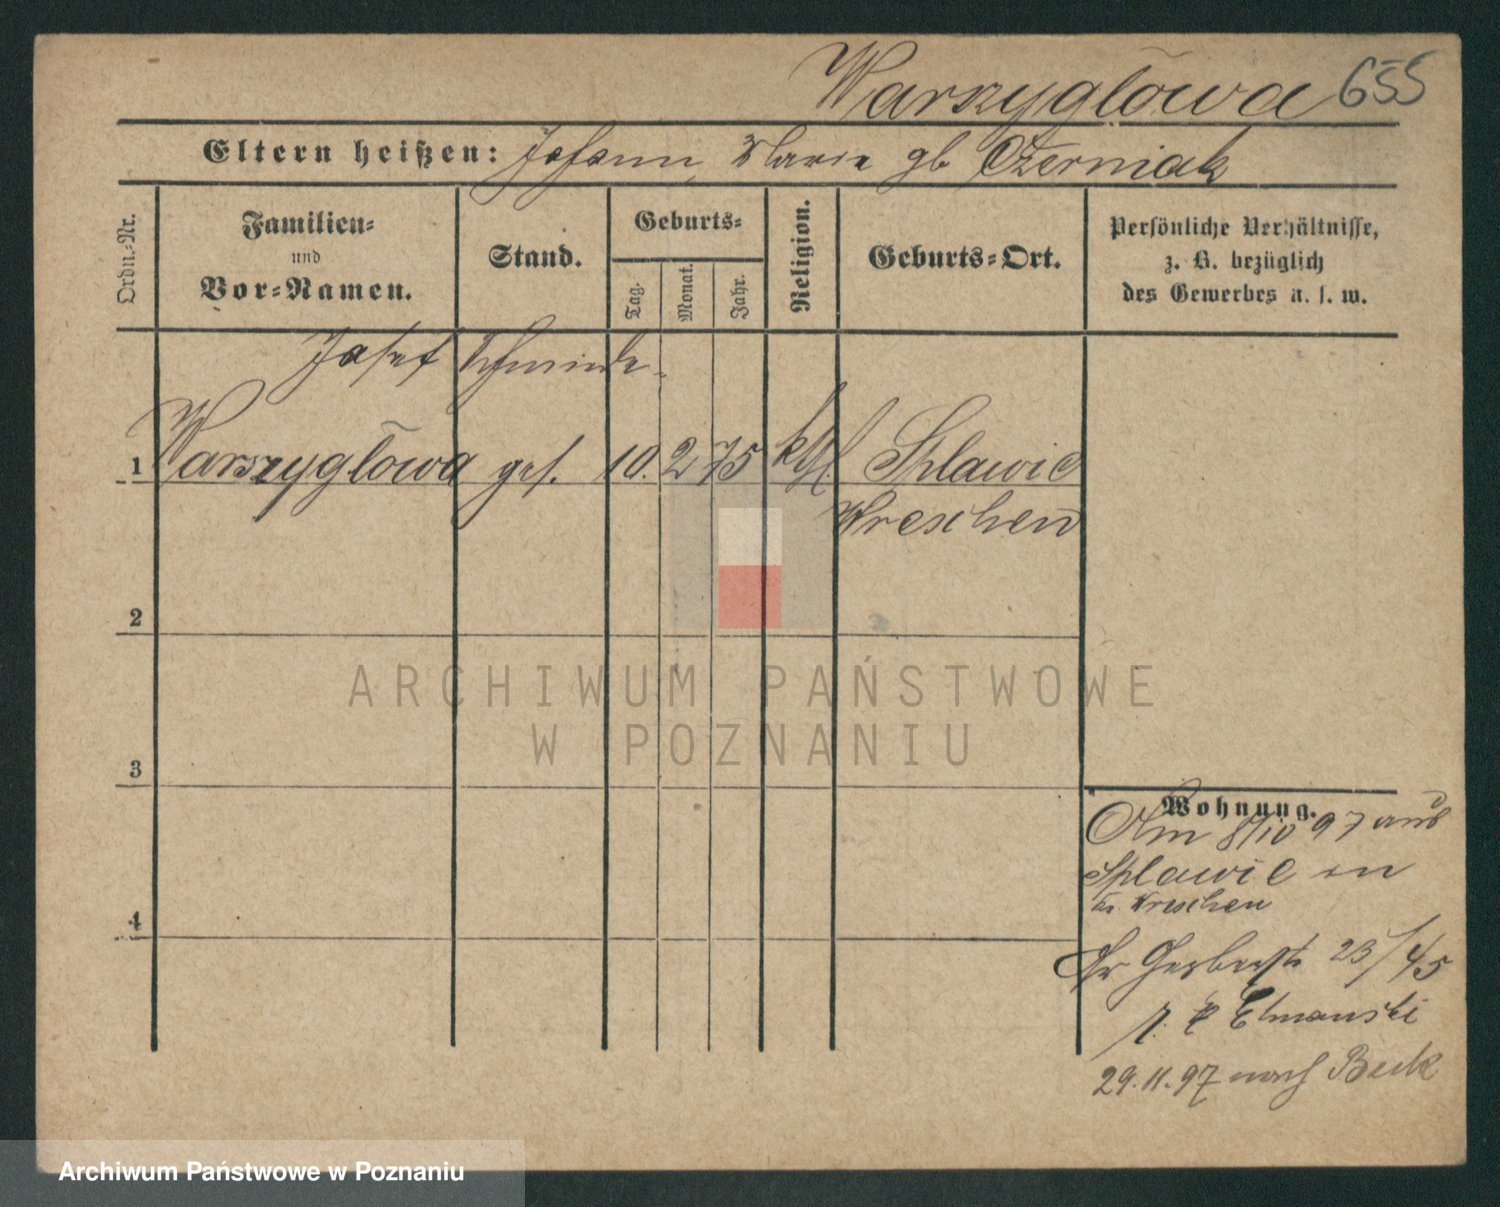 Warszyglōwa 655
Eltern heißen: Johann, Maria gb Czerniak
Ordn.-Nr.
Familien- und Vor-Namen.
Stand.
Geburts-
Tag.
Monat.
Jahr.
Religion.
Geburts-Ort.
Persönliche Verhältnisse,
z. B. bezüglich
des Gewerbes u. s. w.
Josef Schmied
1 Warszyglōwa 10. 2 75 kth. Splawie
Wreschen
2
3
4
Wohnung.
Am 8/10 97 aus
Splawie in
Kr. Wreschen
Gr Gerberstr 23/45
29.11.97 nach Buk
ARCHIWUM PAŃSTWOWE
W POZNANIU
Archiwum Państwowe w Poznaniu